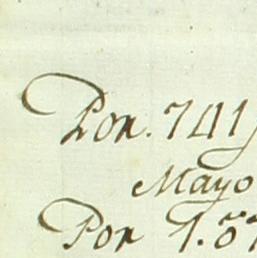 Por. 741
Mayo
Por 1.57